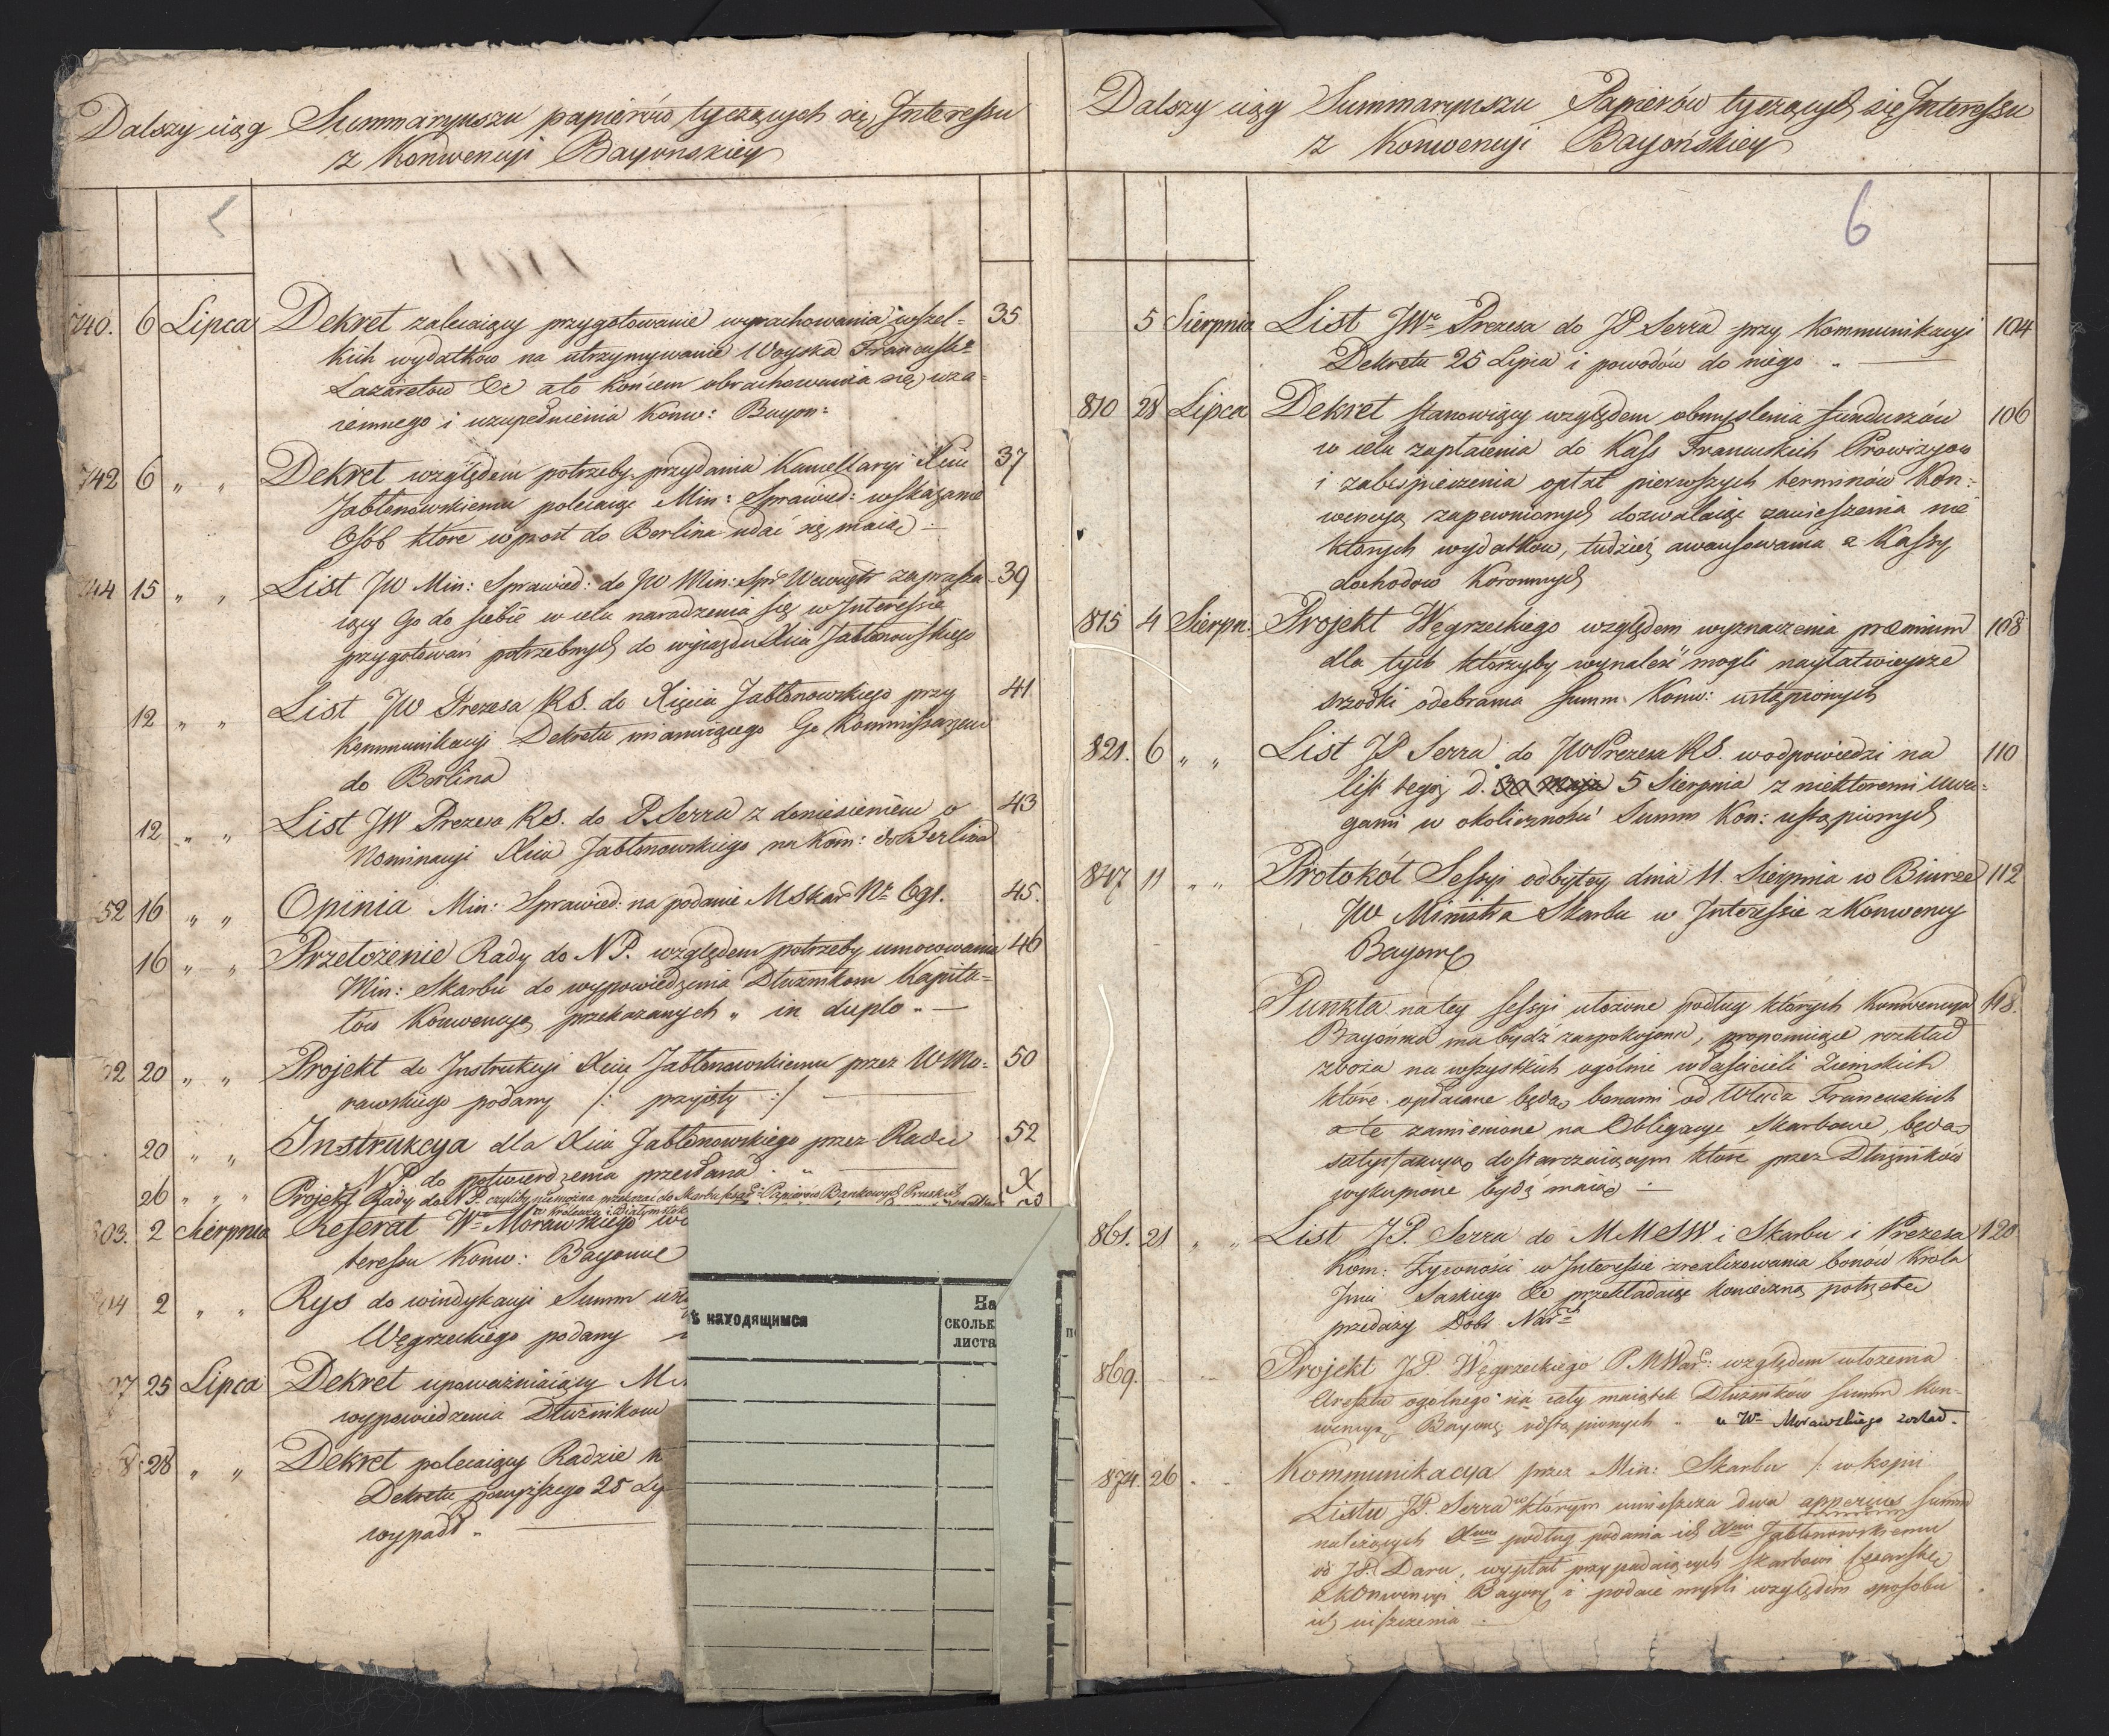 Dalszy ciąg Summaryuszu papierów tyczących się Interessu
z Konwencyi Bayonskiey
740. 6 Lipca Dekret zalecaiący przygotowanie wyrachowania wszel= 35
kich wydatków na utrzymywanie Woyska Francusko
Lazaretow &c a to końcem obrachowania się wza=
iemnego i uzupełnienia Konw: Bayon:
742 6 " " Dekret względem potrzeby przydania Kancellaryi Xciu 37
Jabłonowskiemu polecaiąc Min: Sprawied: wskazanie
Osób ktore wprost do Berlina udać się maią
744 15 " " List JW Min: Sprawied: do JW Min: Spr Wewnętr zaprasza 39
iący Go do siebie w celu naradzenia się w Interessie
przygotowań potrzebnych do wyiazdu Xcia Jabłonowskiego
12 " " List JW Prezesa RS. do Xięcia Jabłonowskiego przy 41
Kommunikacyi Dekretu mianuiącego Go Kommissarzem
do Berlina
12 " " List JW Prezesa RS. do P. Serra z doniesieniem o 43
Nominacyi Xcia Jabłonowskiego na Kom: do Berlina
52 16 " " Opinia Min: Sprawied: na podanie M Skar Nr 691. 45.
16 " " Przełożenie Rady do NP. względem potrzeby umocowania 46
Min: Skarbu do wypowiedzenia Dłużnikom Kapita=
łów Konwencyą przekazanych " in duplo " —
20 " " Projekt do Instrukcyi Xciu Jabłonowskiemu przez W Mo= 50
rawskiego podany /: przyięty :/
20 " " Instrukcya dla Xcia Jabłonowskiego przez Radę 52
N.P. do potwierdzenia przesłana
26 " " " Projekt Rady do NP. czyliby niemożna przekazać do Skarbu Papierów Bankowych Pruskich X
w Krolewcu i Białymstoku
803. 2 Sierpnia Referat Wo Morawskiego
teressu Konw: Bayonne
2 " " Rys do windykacyi Summ
Węgrzeckiego podany
25 Lipca Dekret upoważniaiący
wypowiedzenia Dłużnikom
28 " " Dekret polecaiący Radzie
Dekretu powyższego 25
wypadł "
находящимся
На
сколько
листа
Dalszy ciąg Summaryuszu Papierów tyczących się Interessu
z Konwencyi Bayońskiey
6
5 Sierpnia List JWo Prezesa do JP Serra przy Kommunikacyi 104
Dekretu 25 Lipca i powodów do niego "
810 28 Lipca Dekret stanowiący względem obmyslenia funduszów 106
w celu zapłacenia do Kass Francuskich Prowizyow
i zabespieczenia opłat pierwszych terminów Kon=
wencyą zapewnionych dozwalaiąc zawieszenia nie
których wydatkow, tudzież awansowania z Kassy
dochodow Koronnych
815 4 Sierpn: Projekt Węgrzeckiego względem wyznaczenia præmium 108
dla tych którzyby wynaleść mogli nayłatwieysze
srzodki odebrania Summ Konw: ustąpionych
821. 6 " " List JP Serra do JW Prezesa RS. w odpowiedzi na 110
list tegoż d. 30 Maja 5 Sierpnia z niektoremi uwa=
gami w okoliczności Summ Kon: ustąpionych
847 11 " " Protokół Sessyi odbytey dnia 11. Sierpnia w Biurze 112
JW Ministra Skarbu w Interessie z Konwency
Bayone
Punkta na tey sessyi ułożone podług których Konwencya 118.
Bayońska ma bydź zaspokojona, proponuiące rozkład
zboża na wszystkich ogólnie właścicieli Ziemskich
które opłacane będą bonami od Władz Francuskich
a te zamienione na Obligacye Skarbowe, będą
satysfakcyą dostarczaiącym które przez Dłużników
wykupione bydź maią
861. 21 " " List JP. Serra do M M S W i Skarbu i Prezesa 120
Kom: Żywności w Interessie zrealizowania bonów Krola
Jmci Saskiego &c przekładaiąc konieczną potrzebę
przedaży Dobr Narod
869. Projekt JP. Węgrzeckiego P M War: względem ułożenia
Aresztu ogolnego na cały maiątek Dłużników Summ Kon=
wencyą Bayonę odstąpionych " u Wo Morawskiego został.
874. 26 Kommunikacya przez Min: Skarbu /: w kopii
Listu JP. Serra w którym umieszcza dwa apperçus Summ
należących podług podania ich Xciu Jabłonowskiemu
od JP. Daru, wypłat przypadaiących Skarbowi Cesarskie
z Konwencyi Bayonę i podaie mysli względem sposobu
ich uiszczenia